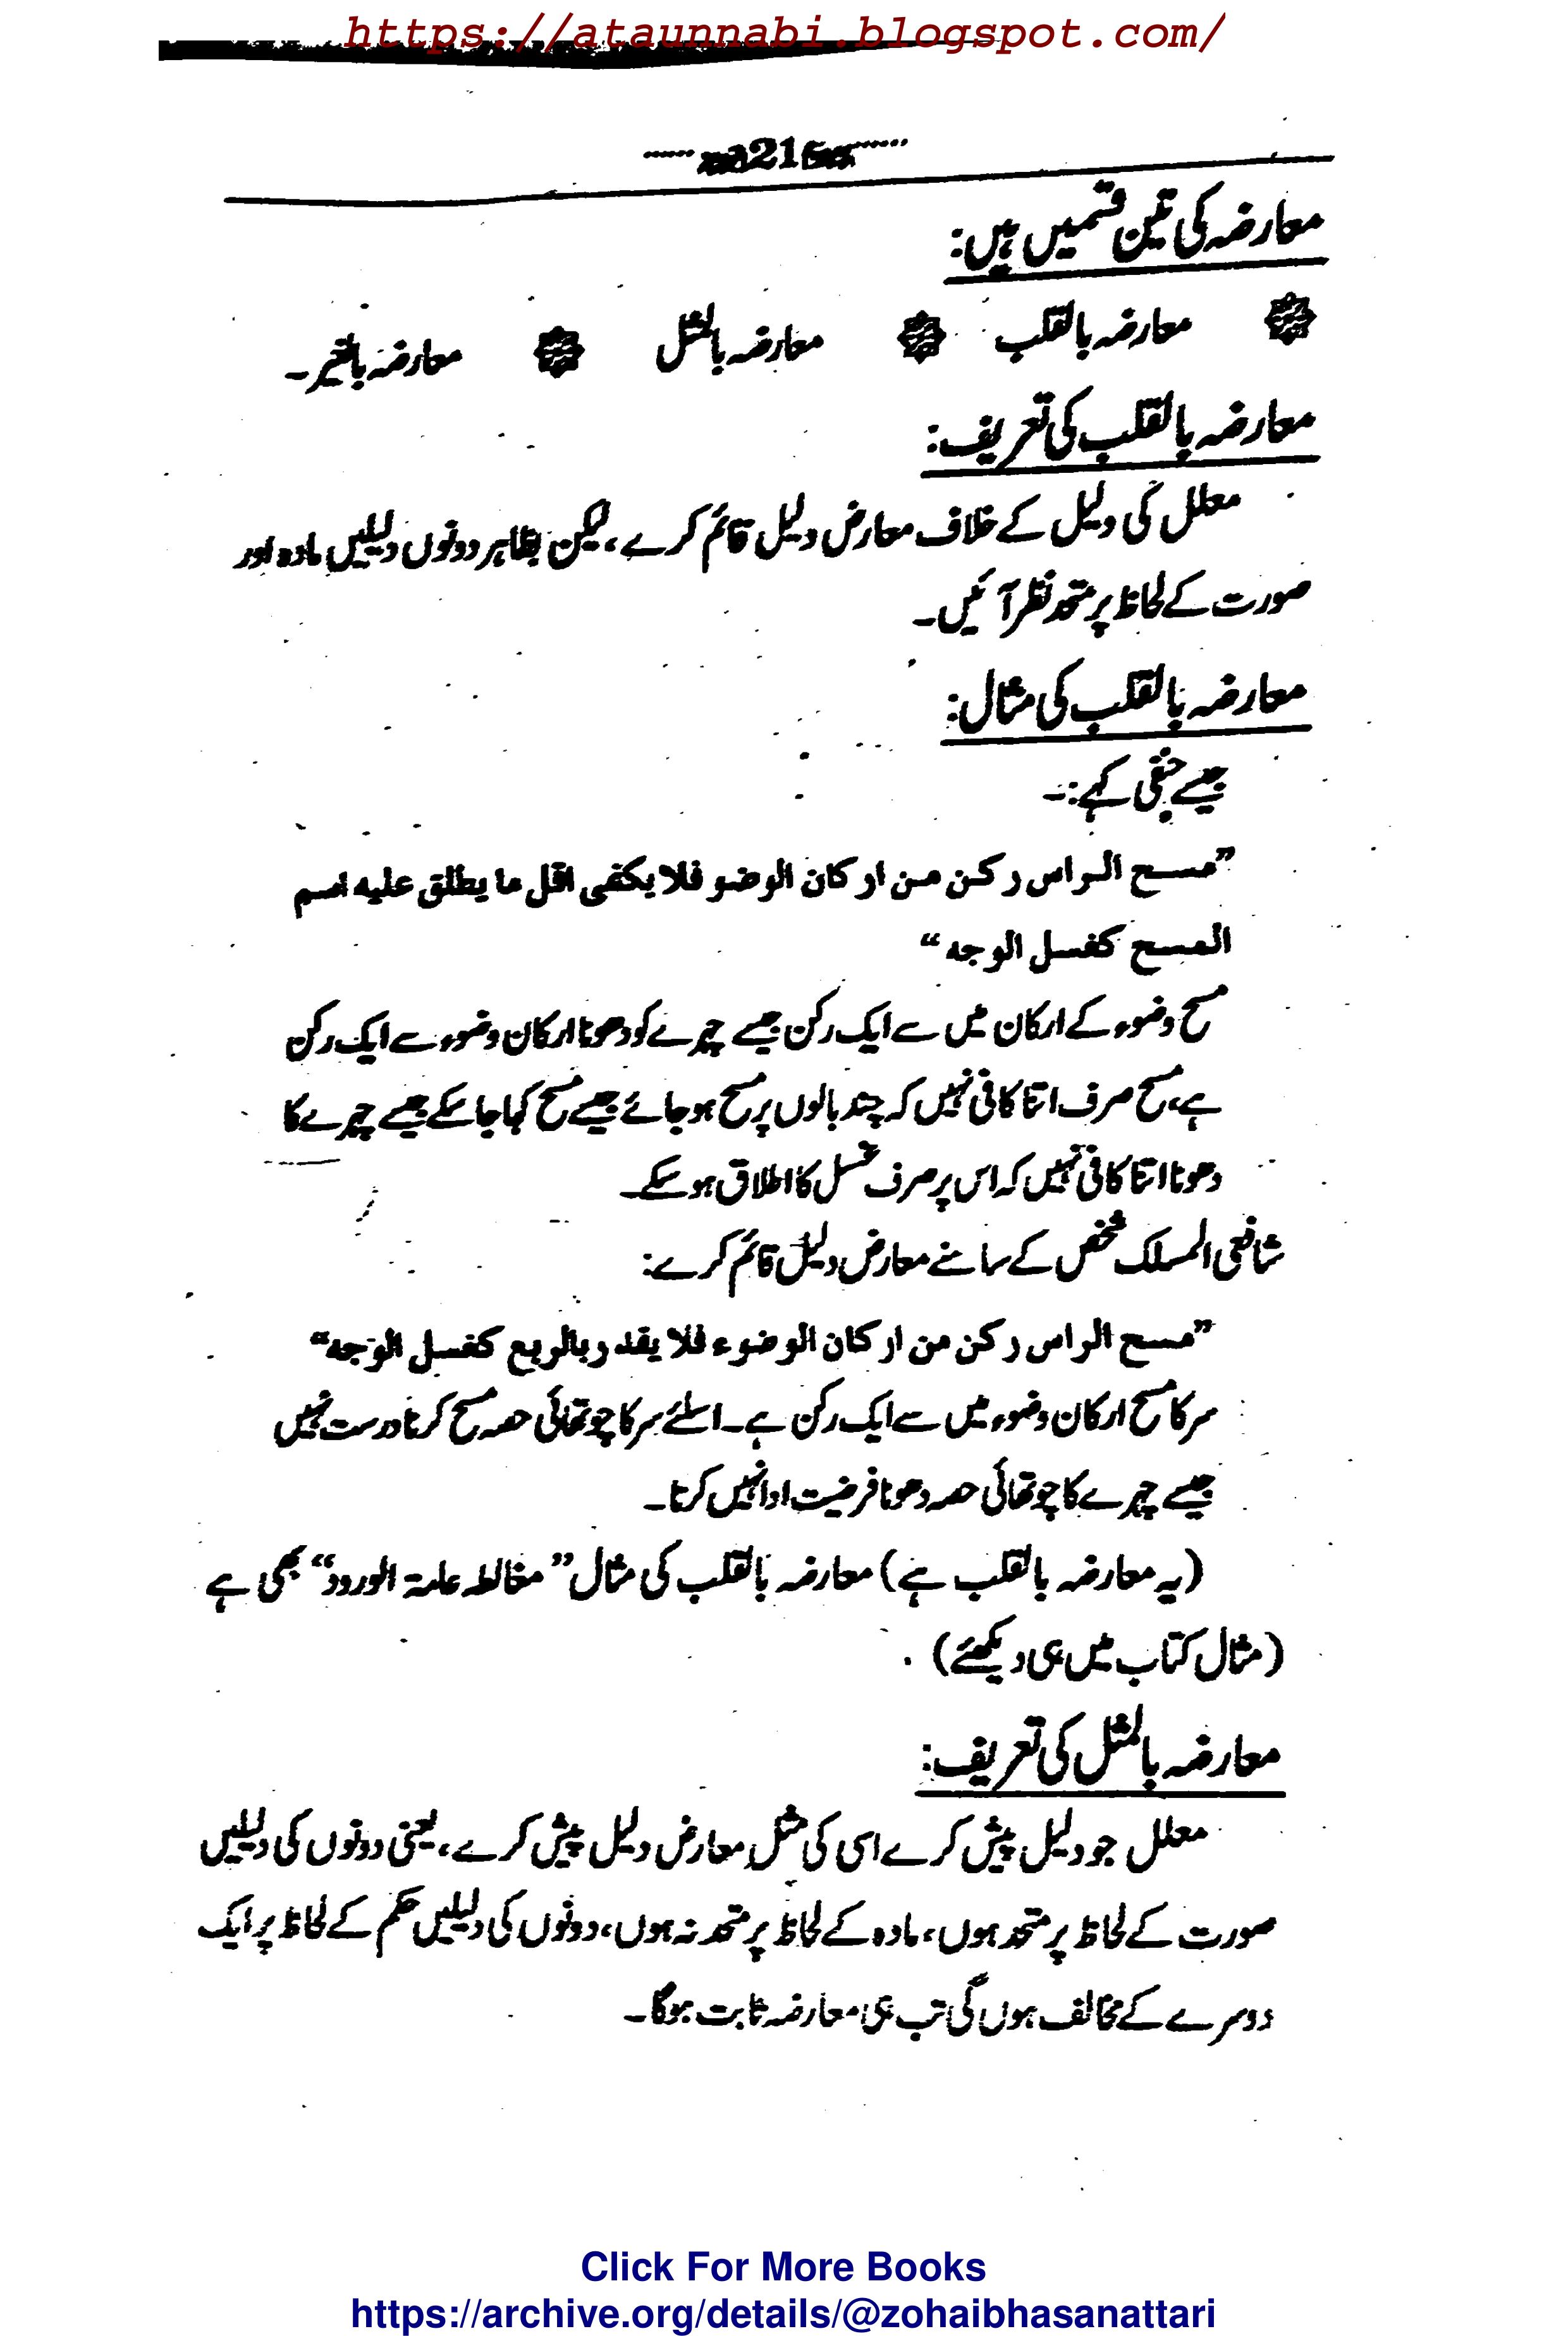 https://ataunnabi.blogspot.com/
216
معارضہ کی تین قسمیں ہیں:
معارضہ بالقلب معارضہ بالمثل معارضہ بالغیر۔
معارضہ بالقلب کی تعریف:
معلل کی دلیل کے خلاف معارض دلیل قائم کرے، لیکن بظاہر دونوں دلیلیں مادہ اور
صورت کے لحاظ پر متحد نظر آئیں۔
معارضہ بالقلب کی مثال:
جیسے حنفی کہے:۔
”مسح الراس رکن من ارکان الوضو فلا یکفی اقل ما یطلق علیه اسم
المسح کغسل الوجه“
مسح وضوء کے ارکان میں سے ایک رکن جیسے چہرے کو دھونا ارکان وضوء سے ایک رکن
ہے، مسح صرف اتنا کافی نہیں کہ چند بالوں پر مسح ہو جائے جیسے مسح کہا جا سکے جیسے چہرے کا
دھونا اتنا کافی نہیں کہ اس پر صرف غسل کا اطلاق ہو سکے۔
شافعی المسلک شخص کے سامنے معارض دلیل قائم کرے:
”مسح الراس رکن من ارکان الوضوء فلا یقدر بالربع کغسل الوجه“
سر کا مسح ارکان وضوء میں سے ایک رکن ہے۔ اسلئے سر کا چوتھائی حصہ مسح کرنا درست نہیں
جیسے چہرے کا چوتھائی حصہ دھونا فرضیت ادا نہیں کرتا۔
(یہ معارضہ بالقلب ہے) معارضہ بالقلب کی مثال ”مغالطہ عامۃ الورود“ بھی ہے
(مثال کتاب میں ہی دیکھئے)
معارضہ بالمثل کی تعریف:
معلل جو دلیل پیش کرے اسی کی مثل معارض دلیل پیش کرے، یعنی دونوں کی دلیلیں
صورت کے لحاظ پر متحد ہوں، مادہ کے لحاظ پر متحد نہ ہوں، دونوں کی دلیلیں حکم کے لحاظ پر ایک
دوسرے کے مخالف ہوں گی تب ہی معارضہ ثابت ہوگا۔
Click For More Books
https://archive.org/details/@zohaibhasanattari